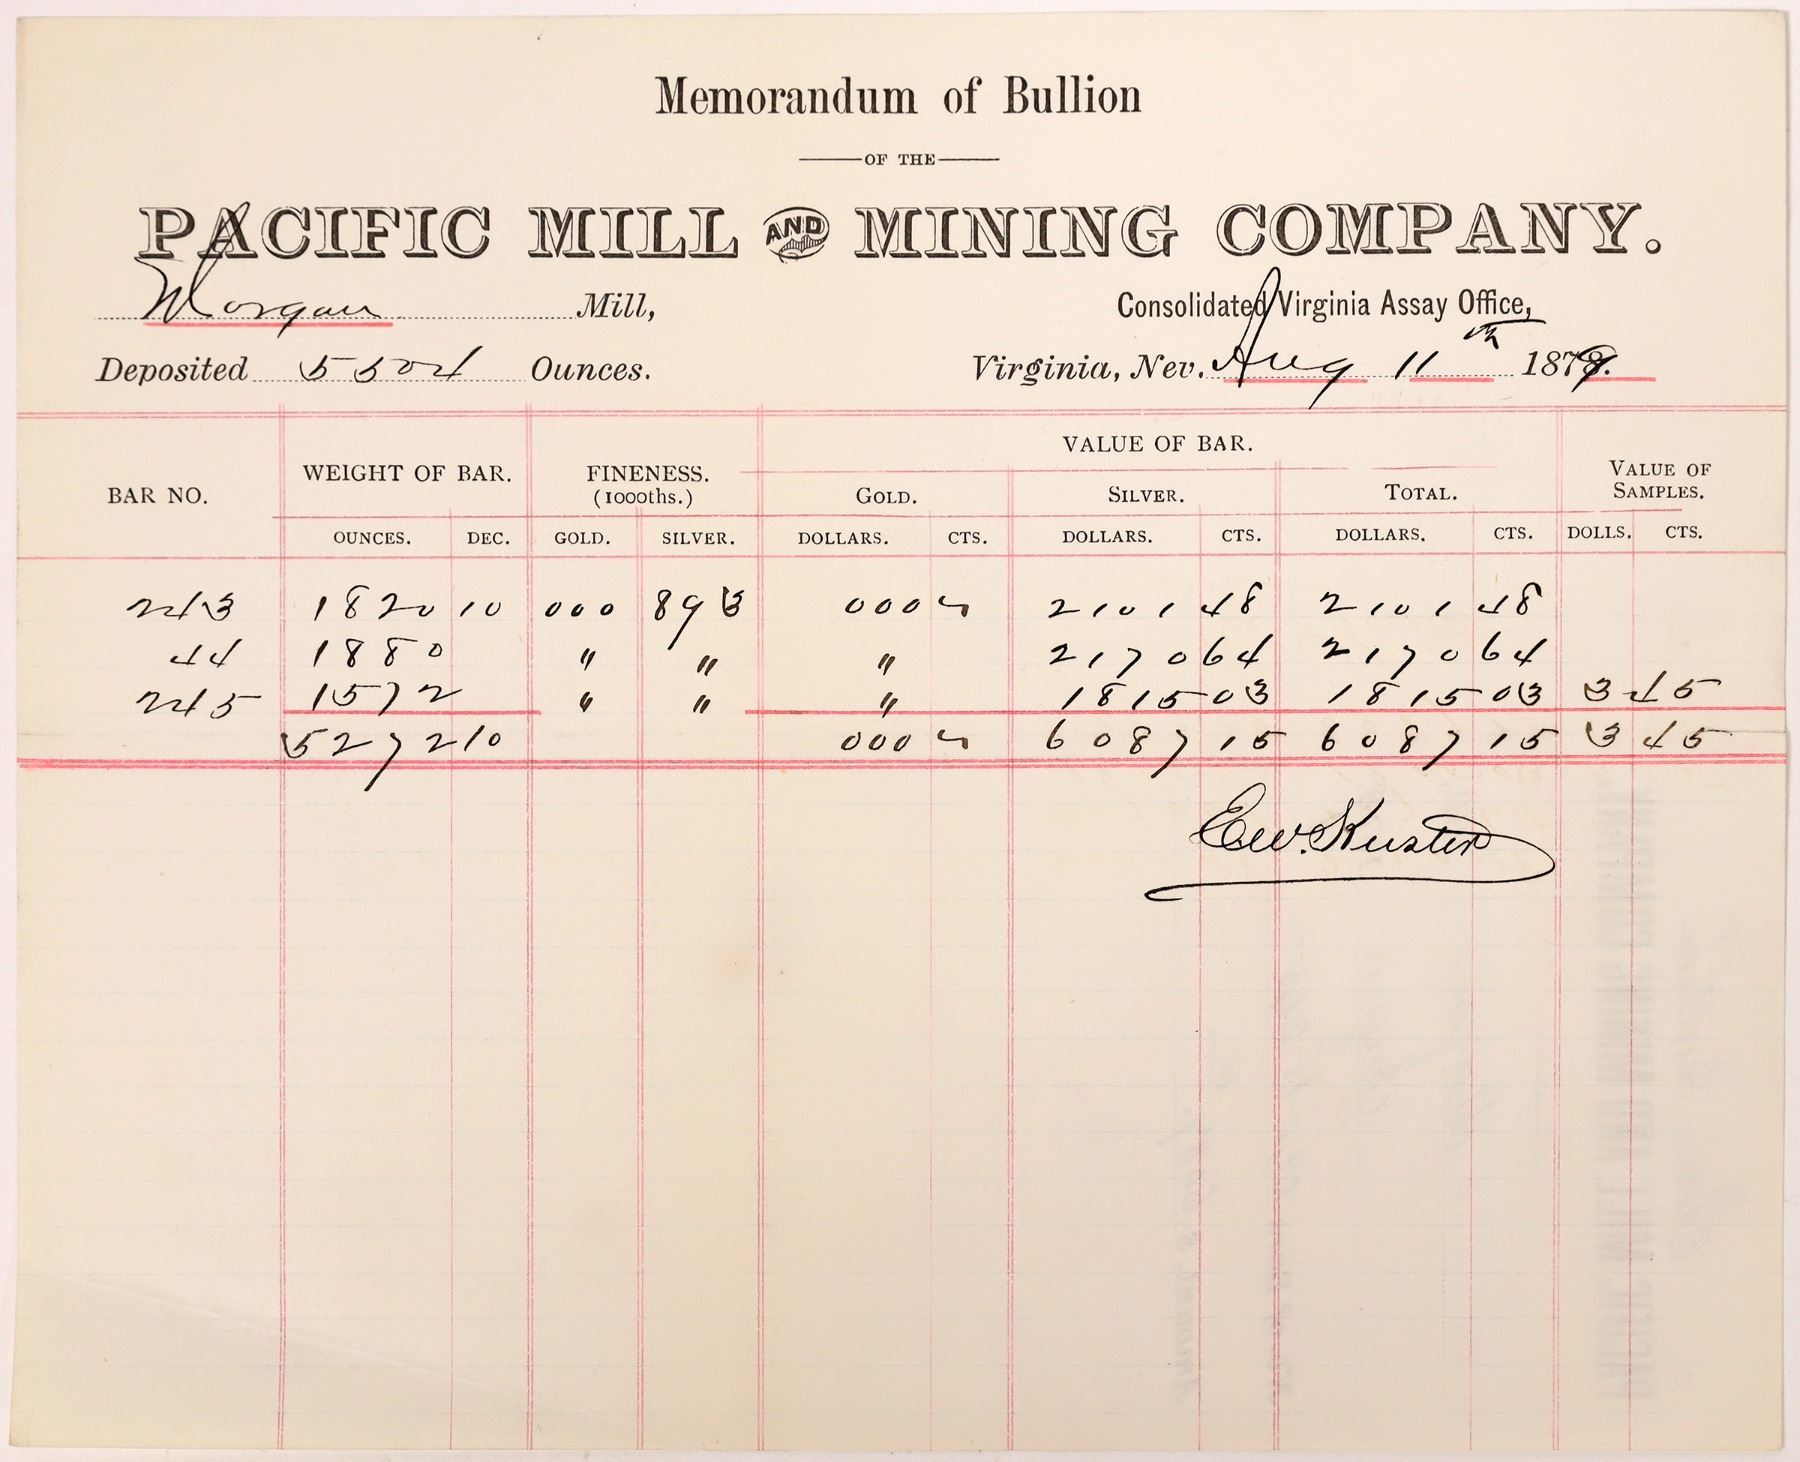 Memorandum of Bullion
OF THE
PACIFIC MILL AND MINING COMPANY.
Morgan Mill, Consolidated Virginia Assay Office,
Deposited 5504 Ounces. Virginia, Nev. Aug 11th 1879.
BAR NO. WEIGHT OF BAR. FINENESS. (1000ths.) VALUE OF BAR. VALUE OF SAMPLES.
GOLD. SILVER. TOTAL.
OUNCES. DEC. GOLD. SILVER. DOLLARS. CTS. DOLLARS. CTS. DOLLARS. CTS. DOLLS. CTS.
243 1820 10 000 893 000 2101 48 2101 48
44 1880 " " " 2170 64 2170 64
245 1572 " " " 1815 03 1815 03 3 45
5272 10 000 6087 15 6087 15 3 45
Ew. Kuster